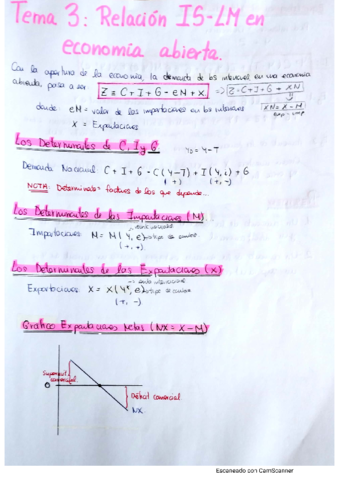 Tema 3: Relación IS-LM en
economía abierta.
Con la apertura de la economía, la demanda de los interiores en una economía
abierta, pasa a ser: Z = C+I+G-eM+X. => Z = C+I+G+XN
donde eM = valor de las importaciones en los interiores XN = X-M
X = Exportaciones
Los Determinantes de C, I y G YD = Y-T
Demanda Nacional C+I+G = C(Y-T) + I(Y, i) + G
(+) (+, -)
NOTA: Determinante = factores de los que depende...
Los Determinantes de las Importaciones (M)
Importaciones M = M(Y, e) tipo de cambio
(+, -)
Los Determinantes de las Exportaciones (X)
Exportaciones X = X(Y*, e) tipo de cambio
(+, -)
Gráfico Exportaciones Netas (NX = X-M)
Superavit
comercial
0
Déficit comercial.
NX
Escaneado con CamScanner